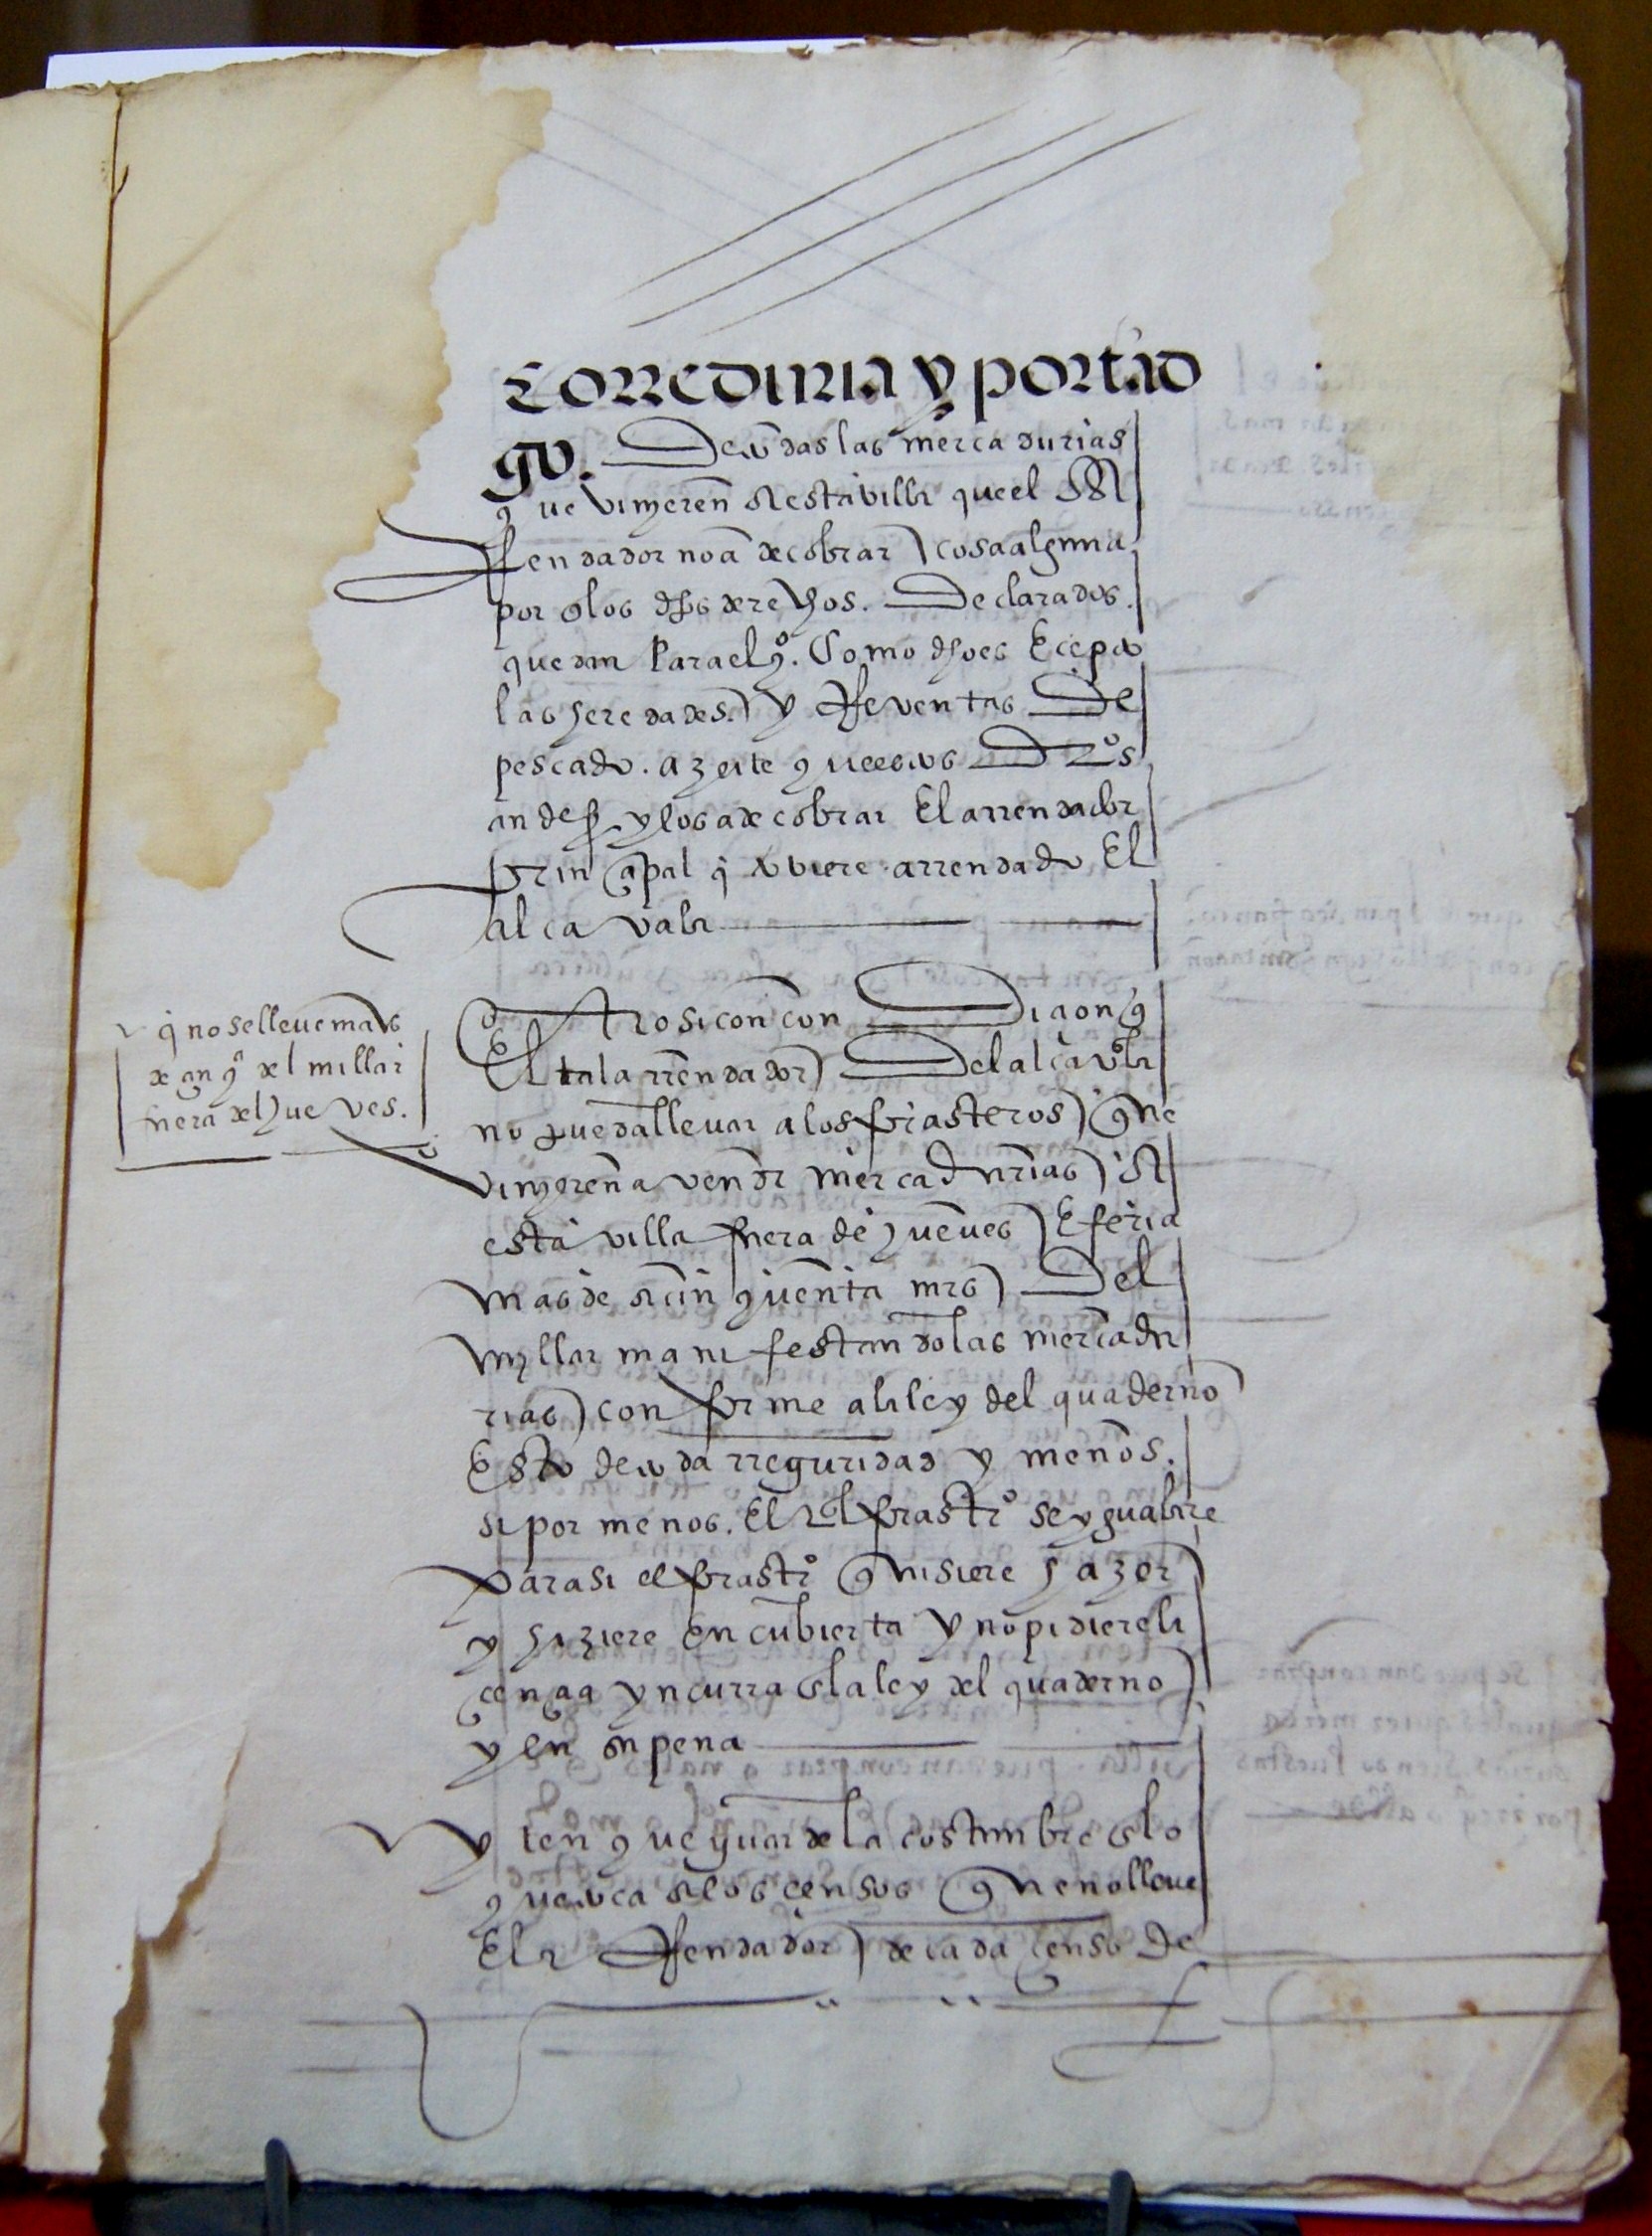 Corrediria y portad
go. De todas las mercadurias
que vinyeren a esta villa que el A
Rendador no a de cobrar cosa alguna
por los dhos derechos. Declarados.
quedan Para el qº. Como dho es Ecepto
las heredades. y Reventas De
pescado. azeite que estos Drºs
an de ser y los a de cobrar El arrendador
principal q tobiere arrendado El
alcavala
Otrosi con con Diçion q
El tal arrendador Del alcavala
no pueda llevar a los forasteros que
vinyeren a vender mercadurias A
esta villa fuera de jueves E feria
mas de A cinquenta mrs Del
myllar manifestando las mercadu
rias conforme a la ley del quaderno
Esto de toda rreguridad y menos.
si por menos. El tal forastrº se ygualare
para si el forastrº quisiere hazer
y hiziere encubierta y no pidiere li
cençia yncurra en la ley del quaderno
y en su pena
q no se lleve mas
de çinqª del millar
fuera del jueves.
Yten que guarde la costumbre en lo
que toca a los çensos que no lleve
El a Rendador de cada çenso de